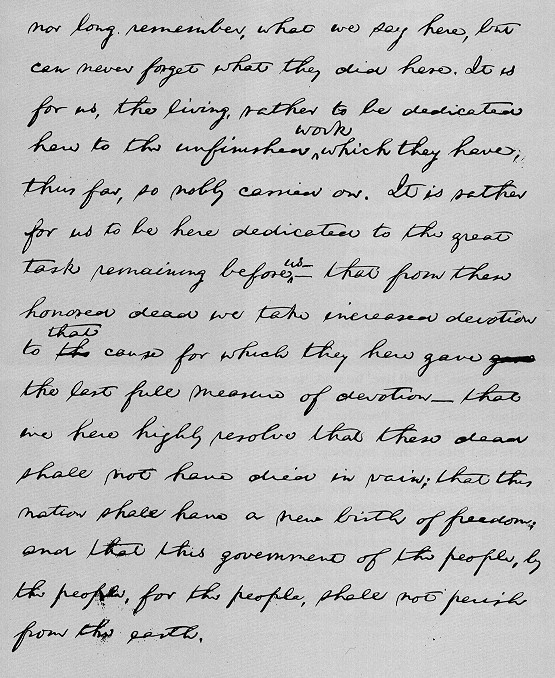 nor long remember, what we say here, but
can never forget what they did here. It is
for us, the living, rather to be dedicated
work
here to the unfinished, which they have,
thus far, so nobly carried on. It is rather
for us to be here dedicated to the great
task remaining before us— that from these
honored dead we take increased devotion
that
to the cause for which they here gave gave
the last full measure of devotion— that
we here highly resolve that these dead
shall not have died in vain; that this
nation shall have a new birth of freedom;
and that this government of the people, by
the people, for the people, shall not perish
from the earth.